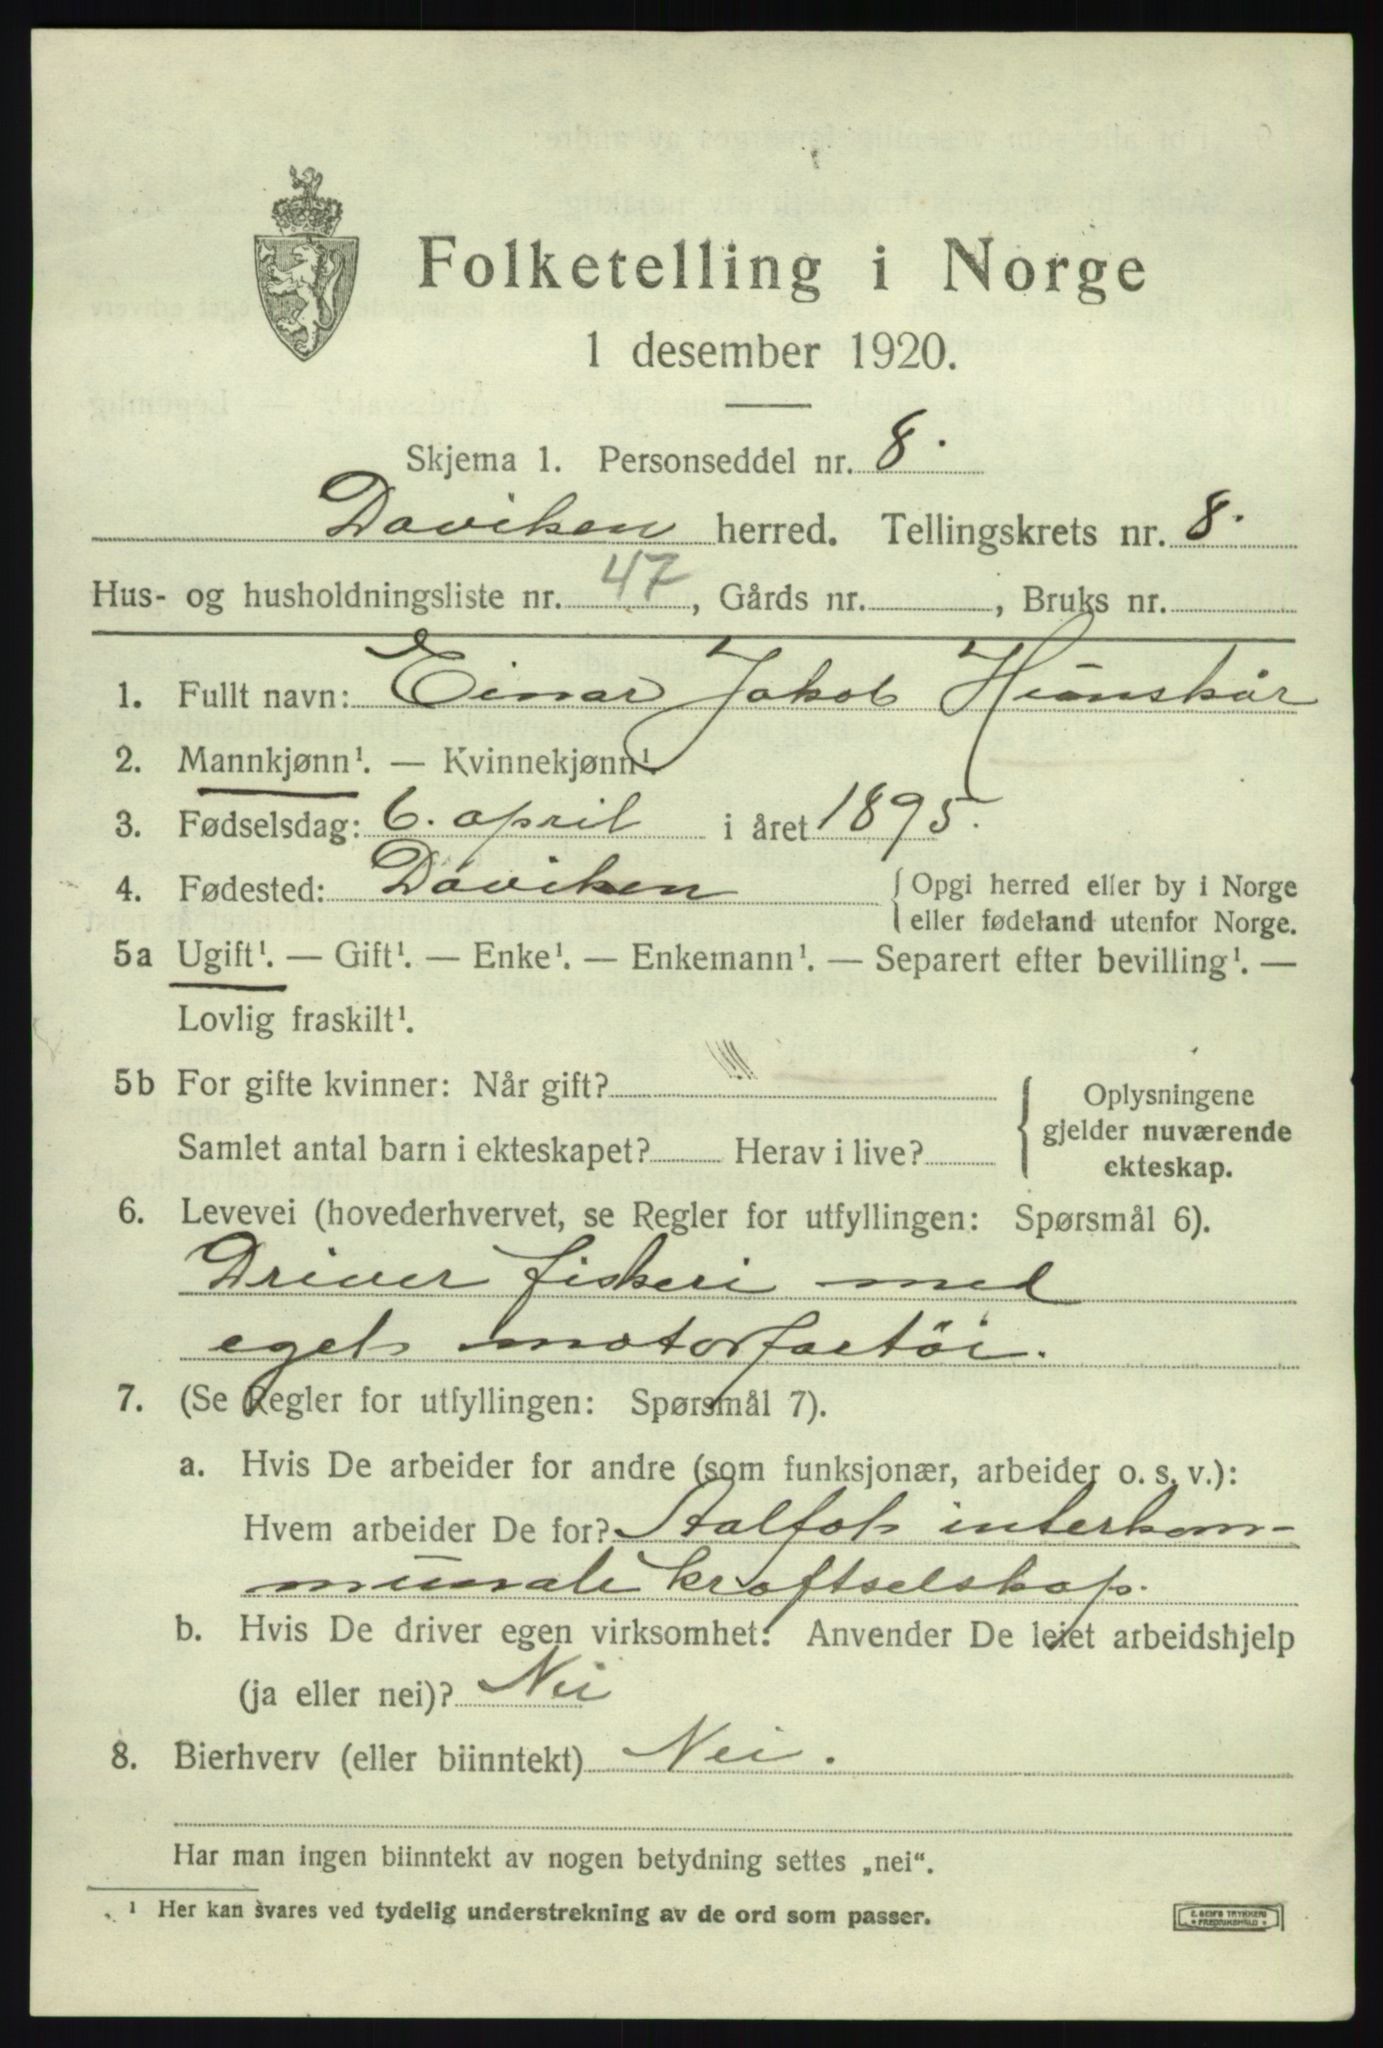 Folketelling i Norge
1 desember 1920.
Skjema 1. Personseddel nr. 8.
Daviken herred. Tellingskrets nr. 8.
Hus- og husholdningsliste nr. 47, Gårds nr. , Bruks nr.
1. Fullt navn: Einar Jakob Hunskår
2. Mannkjønn¹. — Kvinnekjønn¹.
3. Fødselsdag: 6. april i året 1895.
4. Fødested: Daviken { Opgi herred eller by i Norge
eller fødeland utenfor Norge.
5a Ugift¹. — Gift¹. — Enke¹. — Enkemann¹. — Separert efter bevilling¹. —
Lovlig fraskilt¹.
5b For gifte kvinner: Når gift?
Samlet antal barn i ekteskapet? Herav i live?
{ Oplysningene
gjelder nuværende
ekteskap.
6. Levevei (hovederhvervet, se Regler for utfyllingen: Spørsmål 6).
Driver fiskeri med
egel motorfartöi.
7. (Se Regler for utfyllingen: Spørsmål 7).
a. Hvis De arbeider for andre (som funksjonær, arbeider o. s. v.):
Hvem arbeider De for? Aalfot interkom-
munale kraftselskap.
b. Hvis De driver egen virksomhet: Anvender De leiet arbeidshjelp
(ja eller nei)? Nei
8. Bierhverv (eller biinntekt) Nei.
Har man ingen biinntekt av nogen betydning settes „nei“.
¹ Her kan svares ved tydelig understrekning av de ord som passer.
E. SEMS TRYKKERI
FREDRIKSHALD